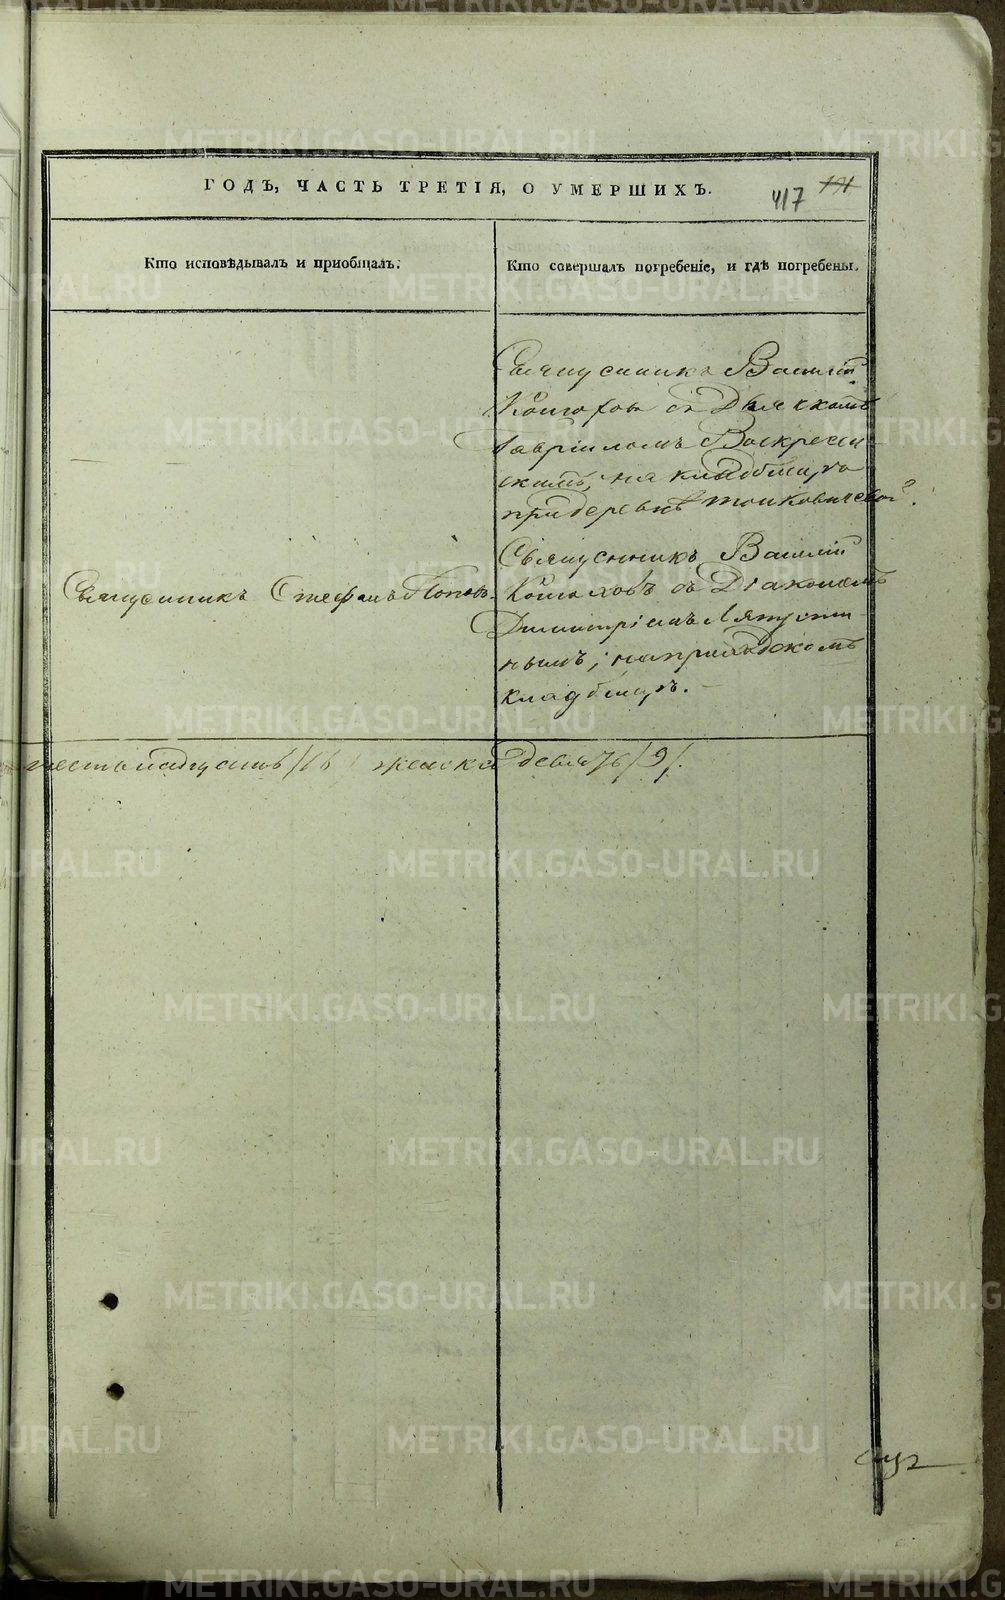 ГОДЪ, ЧАСТЬ ТРЕТІЯ, О УМЕРШИХЪ.
417 191
Кто исповѣдывалъ и пріобщалъ.
Кто совершалъ погребеніе, и гдѣ погребены.
Священникъ Василій
съ Дьякомъ
Гавріиломъ Воскресен
скимъ, на кладбищѣ
при деревнѣ
Священникъ Стефанъ Поповъ.
Священникъ Василій
съ Діакономъ
Димитріемъ Ляпусти
нымъ; на приходскомъ
кладбищѣ.
шестьнадцать /16 женска девять /9/.
METRIKI.GASO-URAL.RU